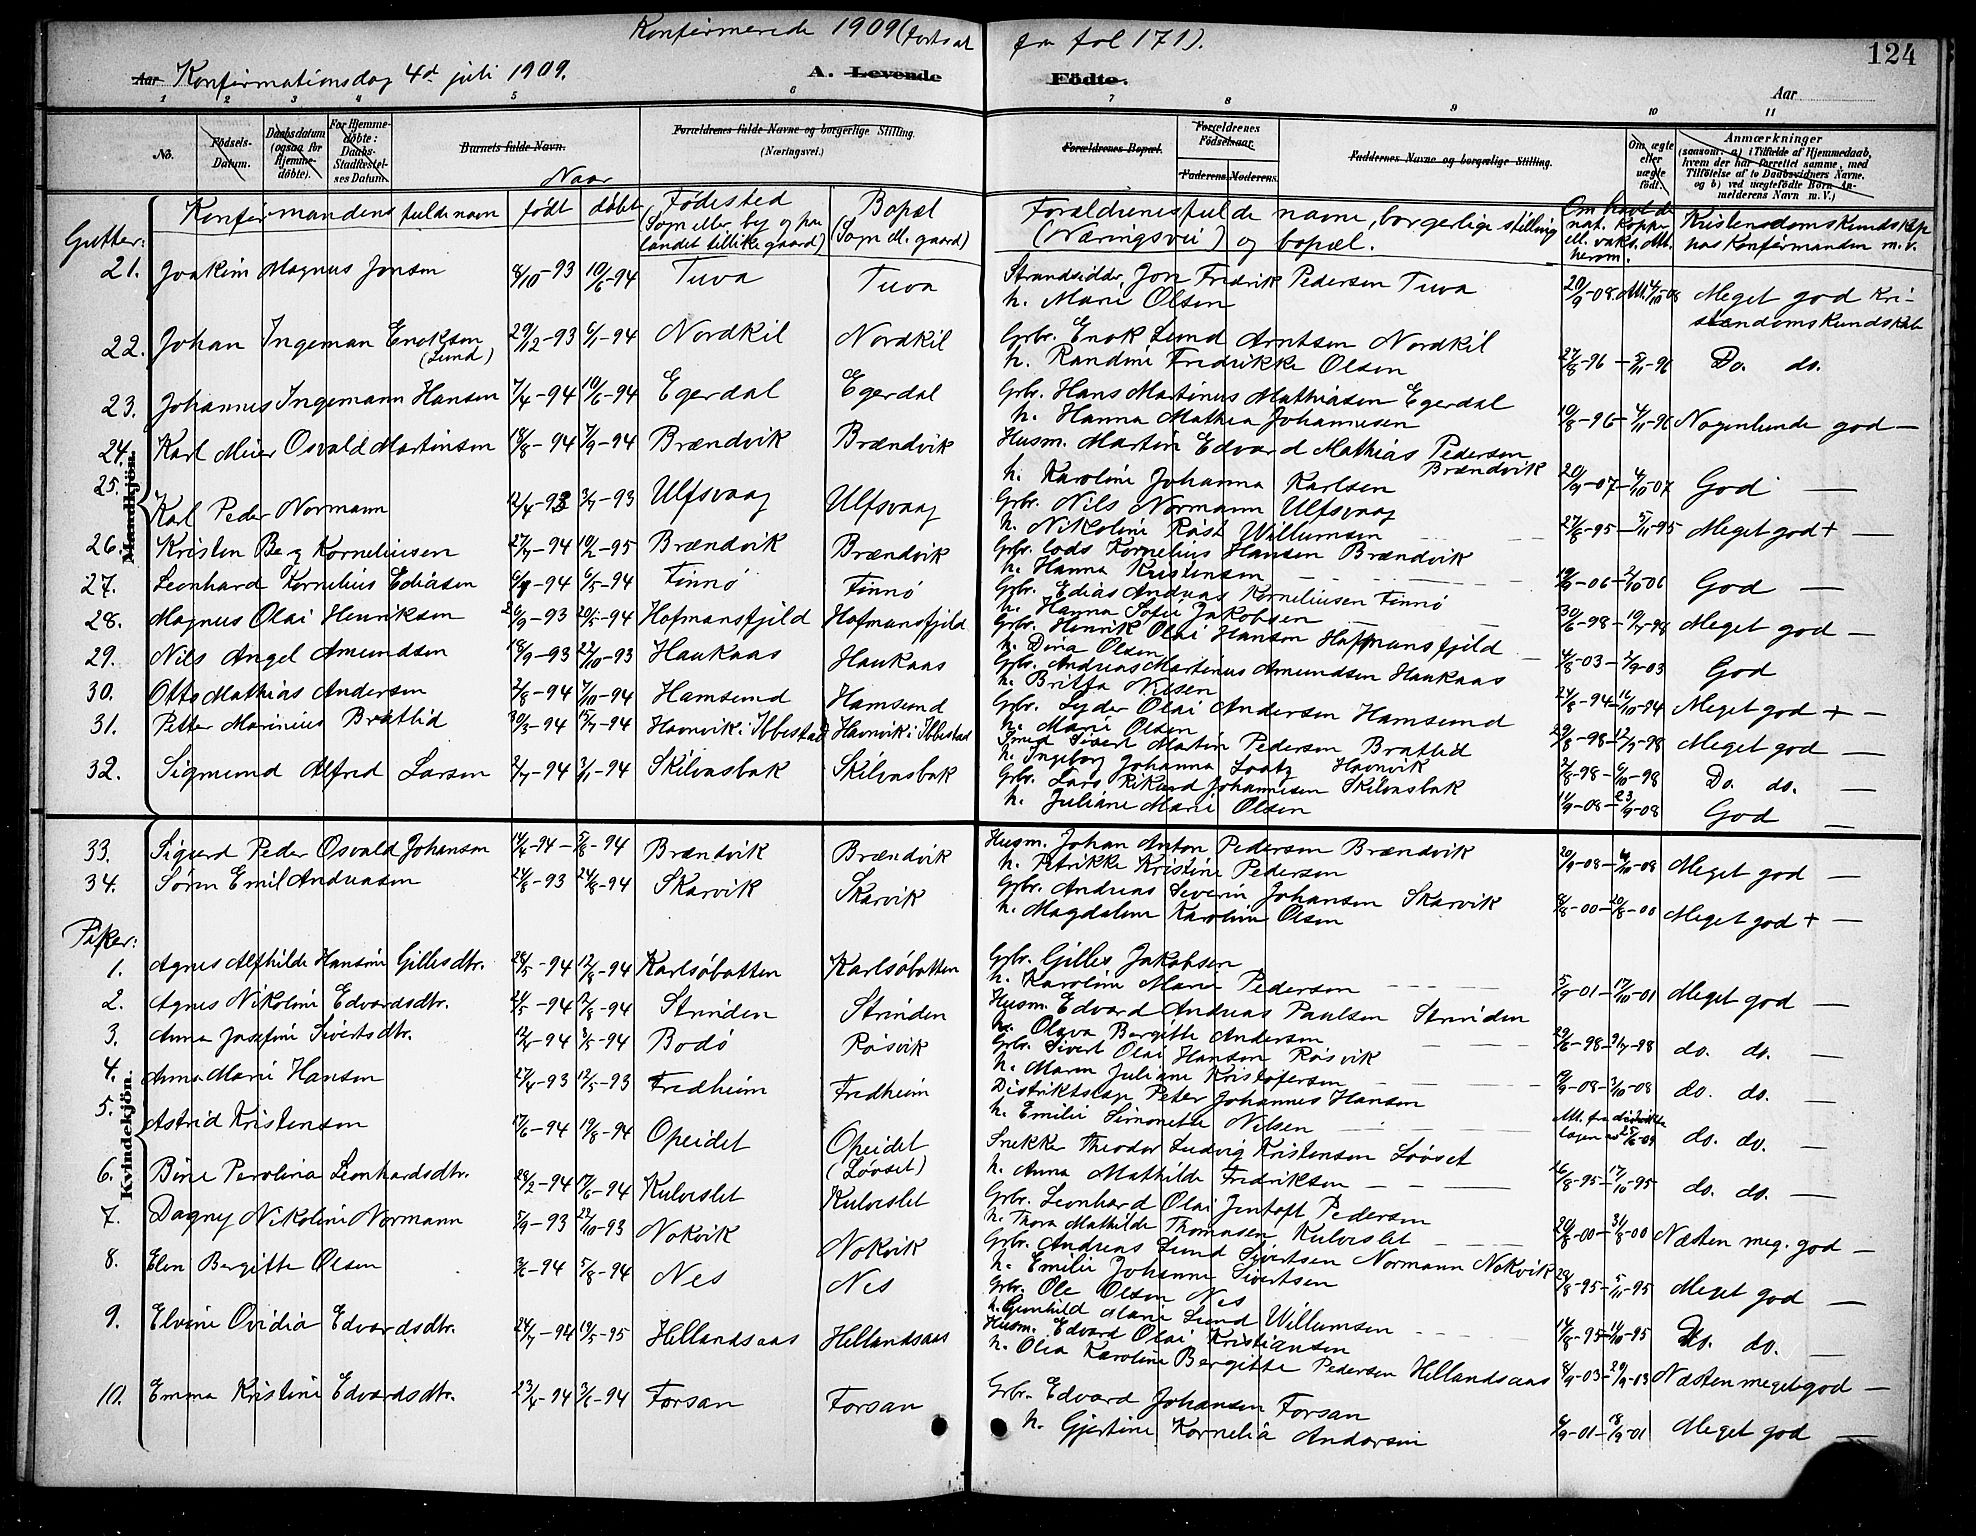 Konfirmerede 1909 (fortsat fra fol 171).
124
Aar Konfirmationsdag 4d juli 1909. A. Levende Födte. Aar
1 2 3 4 5 6 7 8 9 10 11
No. Födsels-Datum. Daabsdatum (ogsaa for Hjemme-döbte). For Hjemme-döbte: Daabs-Stadfæstel-ses Datum. Barnets fulde Navn. Forældrenes fulde Navne og borgerlige Stilling. (Næringsvei.) Forældrenes Bopæl. Forældrenes Födselsaar. Faderens. Moderens. Faddernes Navne og borgerlige Stilling. Om ægte eller uægte födt. Anmærkninger (saasom: a) i Tilfælde af Hjemmedaab, hvem der har forrettet samme, med Tilföielse af to Daabsvidners Navne. og b) ved uægtefödte Börn An-melderens Navn m. V.)
Naar
Konfirmandens fulde navn født døbt Fødested (Sogn eller by og paa landet tillike gaard) Bopæl (Sogn ell. gaard) Forældrenes fulde navne, borgerlige stilling (Næringsvei) og bopæl. Om havt de nat. kopper ell. vaks. Att. herom. Kristendomskundskap hos Konfirmanden m. v.
Gutter:
Mandkjön.
21. Joakim Magnus Jonsen 8/10-93 10/6-94 Tuva Tuva Strandsidder Jon Fredrik Pedersen Tuva
h. Marie Olsen 20/9-08. Att. 4/10-08 Meget god kri-
stendomskundskab
22. Johan Ingeman Enoksen (Lund) 29/12-93 6/1-94 Nordkil Nordkil Grbr. Enok Lund Arntsen Nordkil
h. Randine Fredrikke Olsen 27/8-96 - 5/11-96 Do. do.
23. Johannes Ingemann Hansen 7/4-94 10/6-94 Egerdal Egerdal Grbr. Hans Martinus Mathiasen Egerdal
h. Hanna Mathea Johannesen 19/8-96 - 4/11-96 Nogenlunde god —
24. Karl Meier Osvald Martinsen 18/8-94 9/9-94 Brændvik Brændvik Husm. Martin Edvard Mathias Pedersen Brændvik
h. Karoline Johanna Karlsen 20/9-07 - 4/10-07 God —
25. Karl Peder Normann 12/4-93 3/7-93 Ulfsvaag Ulfsvaag Grbr. Nils Normann Ulfsvaag
h. Nikoline Røst Willumsen 27/8-95 - 5/11-95 Meget god + —
26. Kristen Berg Korneliusen 27/7-94 10/2-95 Brændvik Brændvik Grbr. lods Kornelius Hansen Brændvik
h. Hanna Kristensen 19/9-06 - 2/10-06 God —
27. Leonhard Kornelius Ediasen 6/1-94 6/5-94 Finnø Finnø Grbr. Edias Andreas Korneliusen Finnø
h. Hanna Sofie Jakobsen 30/6-98 - 10/7-98 Meget god —
28. Magnus Olai Henriksen 26/9-93 20/5-94 Hofmansfjeld Hofmansfjeld Grbr. Henrik Olai Hanson Hofmansfjeld
h. Dina Olsen 4/8-03 - 2/9-03 God
29. Nils Angel Amundsen 18/9-93 22/10-93 Haukaas Haukaas Grbr. Andreas Martinus Amundsen Haukaas
h. Britha Nilsen 24/8-94 - 16/10-94 Meget god + —
30. Otto Mathias Andersen 2/8-94 7/10-94 Hamsund Hamsund Grbr. Lyder Olai Andersen Hamsund
h. Marie Olsen 29/8-98 - 12/9-98 Meget god —
31. Petter Marinius Bratlid 30/3-94 15/7-94 Havnvik i Ibbestad Havnvik i Ibbestad Smed Sivert Martin Pedersen Bratlid
h. Ingeborg Johanna Lootz Havnvik 2/8-98 - 6/10-98 Do. do. —
32. Sigmund Alfred Larsen 2/7-94 3/11-94 Skilvasbak Skilvasbak Grbr. Lars Rikard Johannesen Skilvasbak
h. Juliane Marie Olsen 11/9-08 - 23/9-08 God —
33. Sigurd Peder Osvald Johansen 14/4-94 - 5/8-94 Brændvik Brændvik Husm. Johan Anton Pedersen Brændvik
h. Petrikke Kristine Pedersen 20/9-08 - 4/10-08 Meget god —
34. Søren Emil Andreasen 24/8-93 24/8-94 Skarvik Skarvik Grbr. Andreas Severin Johansen Skarvik
h. Magdalene Karoline Olsen 8/8-00 - 20/8-00 Meget god + —
Piker:
Kvindekjön.
1. Agnes Alfhilde Hansine Gillesdtr. 28/5-94 12/8-94 Karlsøbotten Karlsøbotten Grbr. Gilles Jakobsen
h. Karoline Marie Pedersen 5/9-01 - 17/10-01 Meget god —
2. Agnes Nikoline Edvardsdtr. 21/5-94 12/8-94 Strinden Strinden Husm. Edvard Andreas Paulsen Strinden
h. Olava Bergitte Andersen 29/6-98 - 9/7-98 do. do. —
3. Anna Josefine Sivertsdtr. 12/4-94 3/5-94 Bodø Røsvik Grbr. Sivert Olai Hansen Røsvik
h. Maren Juliane Kristofersen 19/9-08 - 3/10-08 do. do. —
4. Anna Marie Hansen 27/4-93 12/5-93 Fredheim Fredheim Distriktslæge Peter Johannes Hansen
h. Emilie Simonette Nilsen Att. fra distrikts lægen av 25/6-09 do. do. —
5. Astrid Kristensen 17/6-94 19/8-94 Opeidet Opeidet (Løvset) Snekker Theodor Ludvig Kristensen Løvset
h. Anna Mathilde Fredriksen 16/8-95 - 17/10-95 do. do. —
6. Bine Perolina Leonhardsdtr. 28/2-94 17/6-94 Kulvislet Kulvislet Grbr. Leonhard Olai Jentoft Pedersen
h. Thora Mathilde Thomasen Kulvislet 20/8-00 - 31/8-00 Næsten meg. god —
7. Dagny Nikoline Normann 5/9-93 22/10-93 Nokvik Nokvik Grbr. Andreas Lund Sivertsen Normann Nokvik
h. Emilie Johanne Sivertsen 29/8-95 - 5/11-95 Meget god —
8. Elen Bergitte Olsen 3/6-94 5/8-94 Nes Nes Grbr. Ole Olsen Nes
h. Gunhild Marie Lund Willumsen 14/8-95 - 14/10-95 Do. do. —
9. Elvine Ovidia Edvardsdtr. 24/7-94 19/5-95 Hellandsaas Hellandsaas Husm. Edvard Olai Kristiansen
h. Olea Karoline Bergitte Pedersen Hellandsaas 8/9-03 - 29/9-03 Næsten meget god —
10. Emma Kristine Edvardsdtr. 23/4-94 3/6-94 Forsan Forsan Grbr. Edvard Johansen Forsan
h. Gjertine Kornelia Andorsen 6/9-01 - 18/9-01 Meget god —